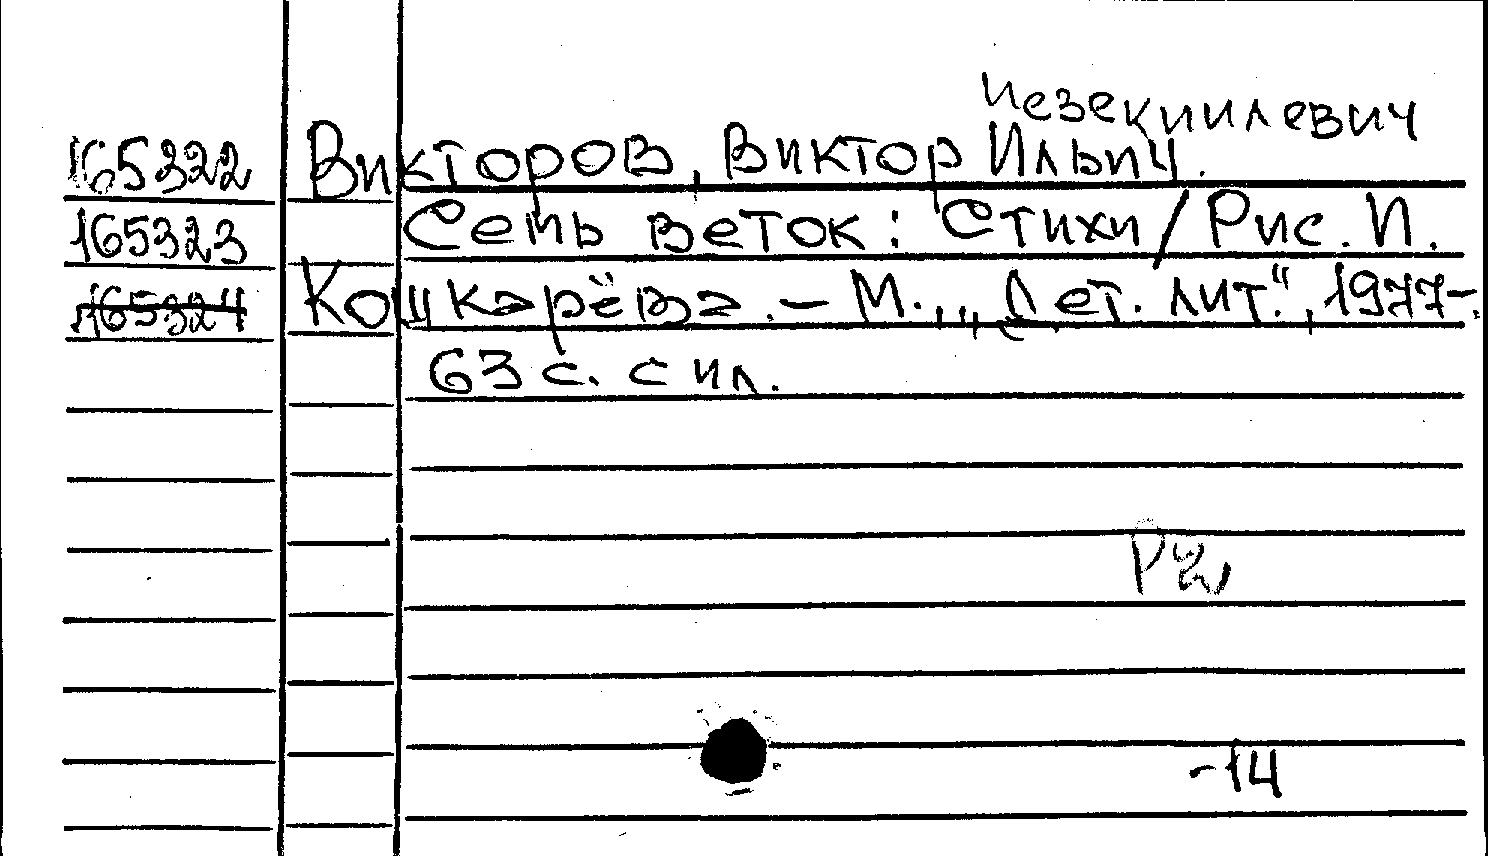 Иезекиилевич
165322 Викторов, Виктор Ильич.
165323 Семь веток: Стихи / Рис. И.
165324 Кошкарёва. - М., „Дет. лит.", 1977-
63 с. с ил.
Р2
-14